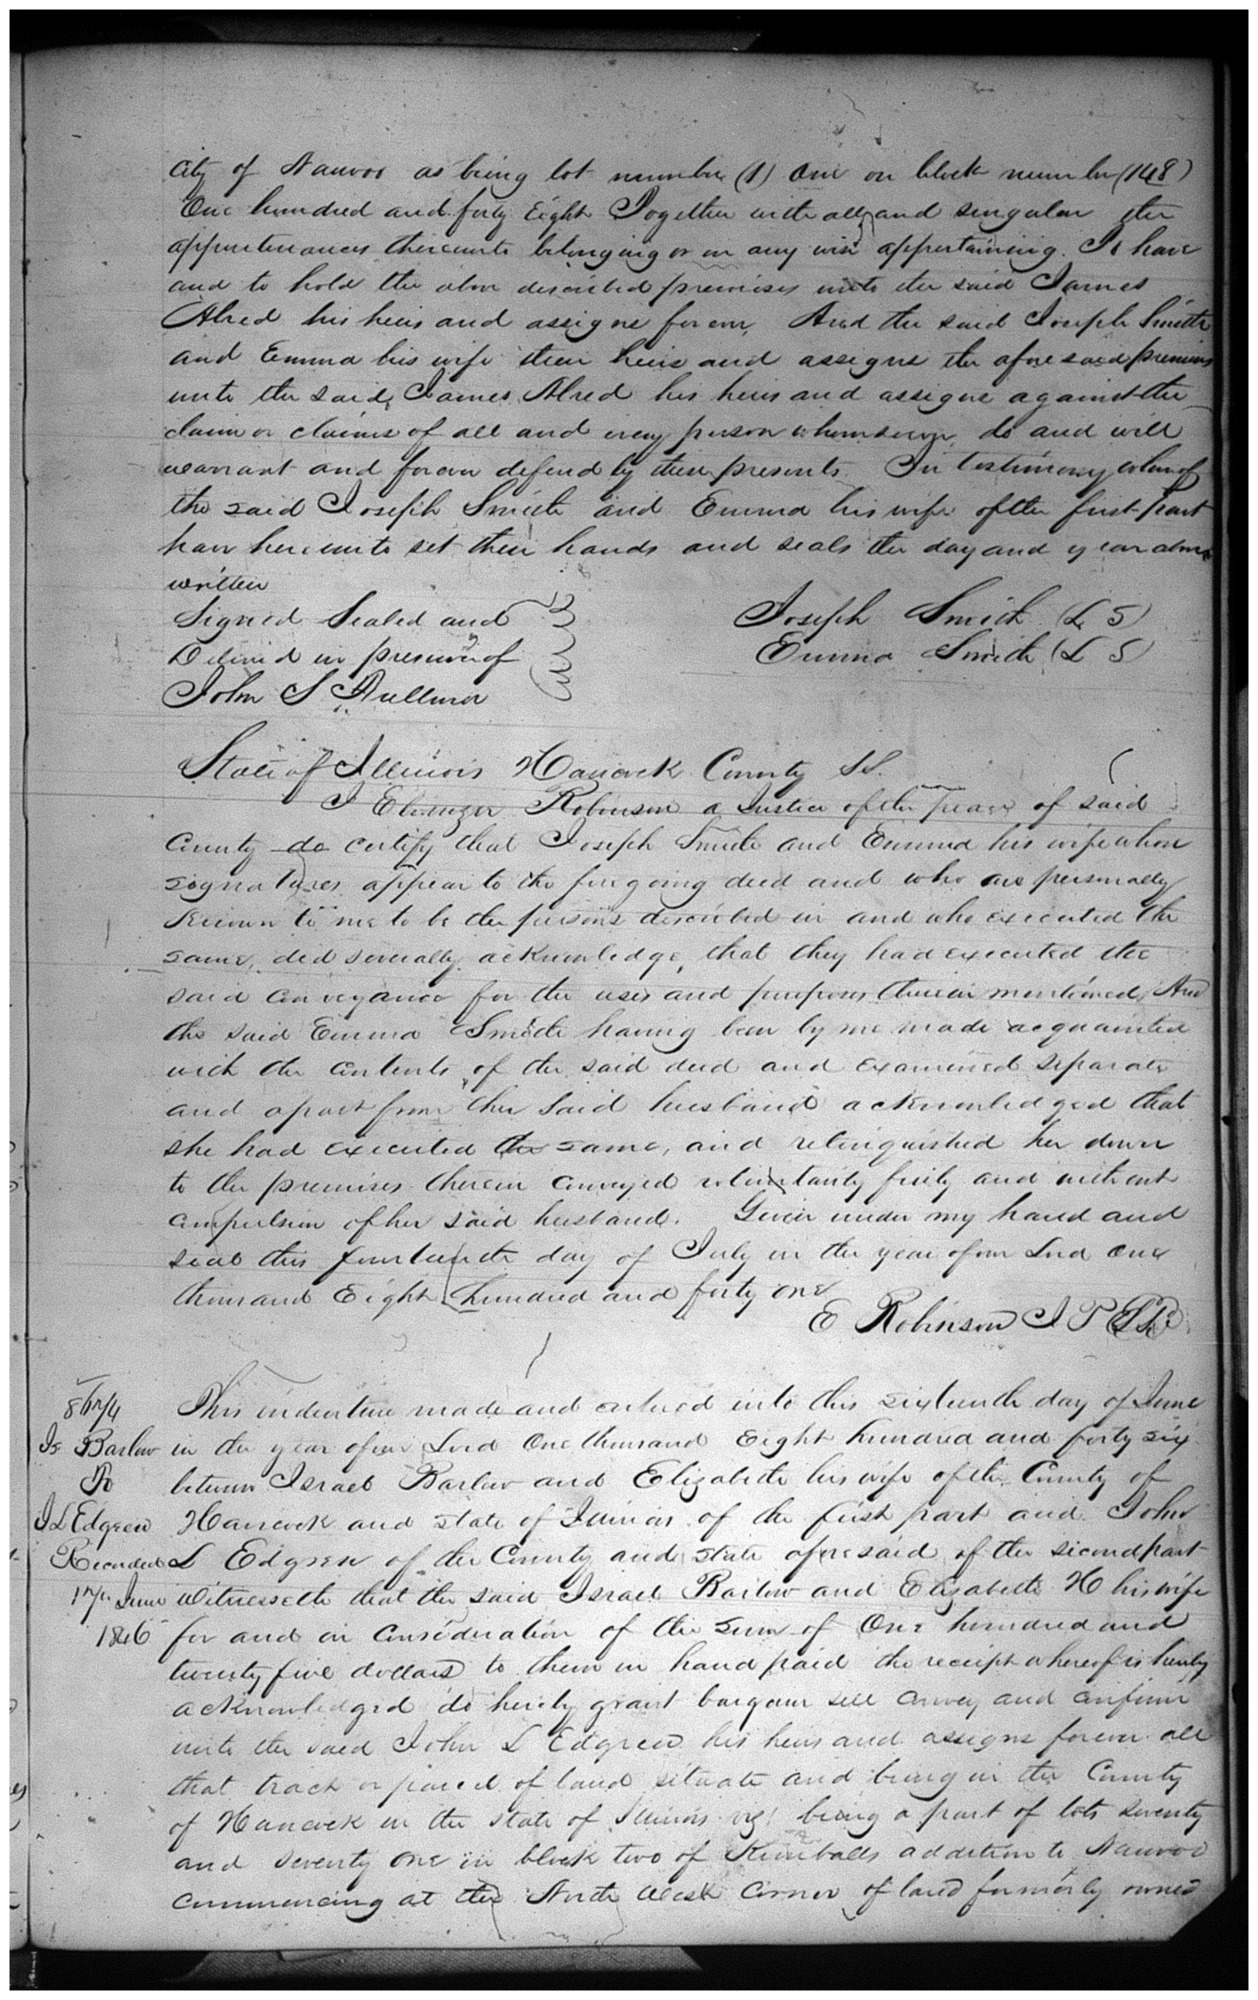 City of Nauvoo as being lot number (1) One on block number (148)
One hundred and forty Eight Together with all and singular the
appurtenances thereunto belonging or in any wise appertaining. To have
and to hold the above described premises unto the said James
Alred his heirs and assigns forever, And the said Joseph Smith
and Emma his wife their heirs and assigns the aforesaid premises
unto the said James Alred his heirs and assigns against the
claim or claims of all and every person whomsoever, do and will
warrant and forever defend by these presents. In testimony whereof
the said Joseph Smith and Emma his wife of the first part
have hereunto set their hands and seals the day and year above
written
Signed Sealed and
Joseph Smith (L S)
Delivered in presence of
Emma Smith (L S)
John S Fullmer
State of Illinois Hancock County SS.
I Ebenezer Robinson a Justice of the peace of said
County do certify that Joseph Smith and Emma his wife whose
signatures appear to the foregoing deed and who are personally
known to me to be the persons described in and who executed the
same, did severally acknowledge, that they had executed the
said conveyance for the uses and purposes therein mentioned, And
the said Emma Smith having been by me made acquainted
with the contents of the said deed and examined separate
and apart from her said husband acknowledged that
she had executed the same, and relinquished her dower
to the premises therein conveyed voluntarily freely and without
compulsion of her said husband. Given under my hand and
seal this fourteenth day of July in the year of our Lord One
thousand Eight hundred and forty one
E Robinson J P
This indenture made and entered into this sixteenth day of June
Is Barlow in the year of our Lord One thousand Eight hundred and forty six
between Israel Barlow and Elizabeth his wife of the County of
J L Edgren Hancock and state of Illinois of the first part and John
Recorded L Edgren of the County and state aforesaid of the second part
17th June witnesseth that the said Israel Barlow and Elizabeth H his wife
1846 for and in consideration of the sum of One hundred and
twenty five dollars to them in hand paid the receipt whereof is hereby
acknowledged do hereby grant bargain sell convey and confirm
unto the said John L Edgren his heirs and assigns forever all
that track or parcel of land situate and being in the County
of Hancock in the state of Illinois viz! being a part of lots seventy
and seventy one in block two of Kimballs addition to Nauvoo
commencing at the North West corner of land formerly owned